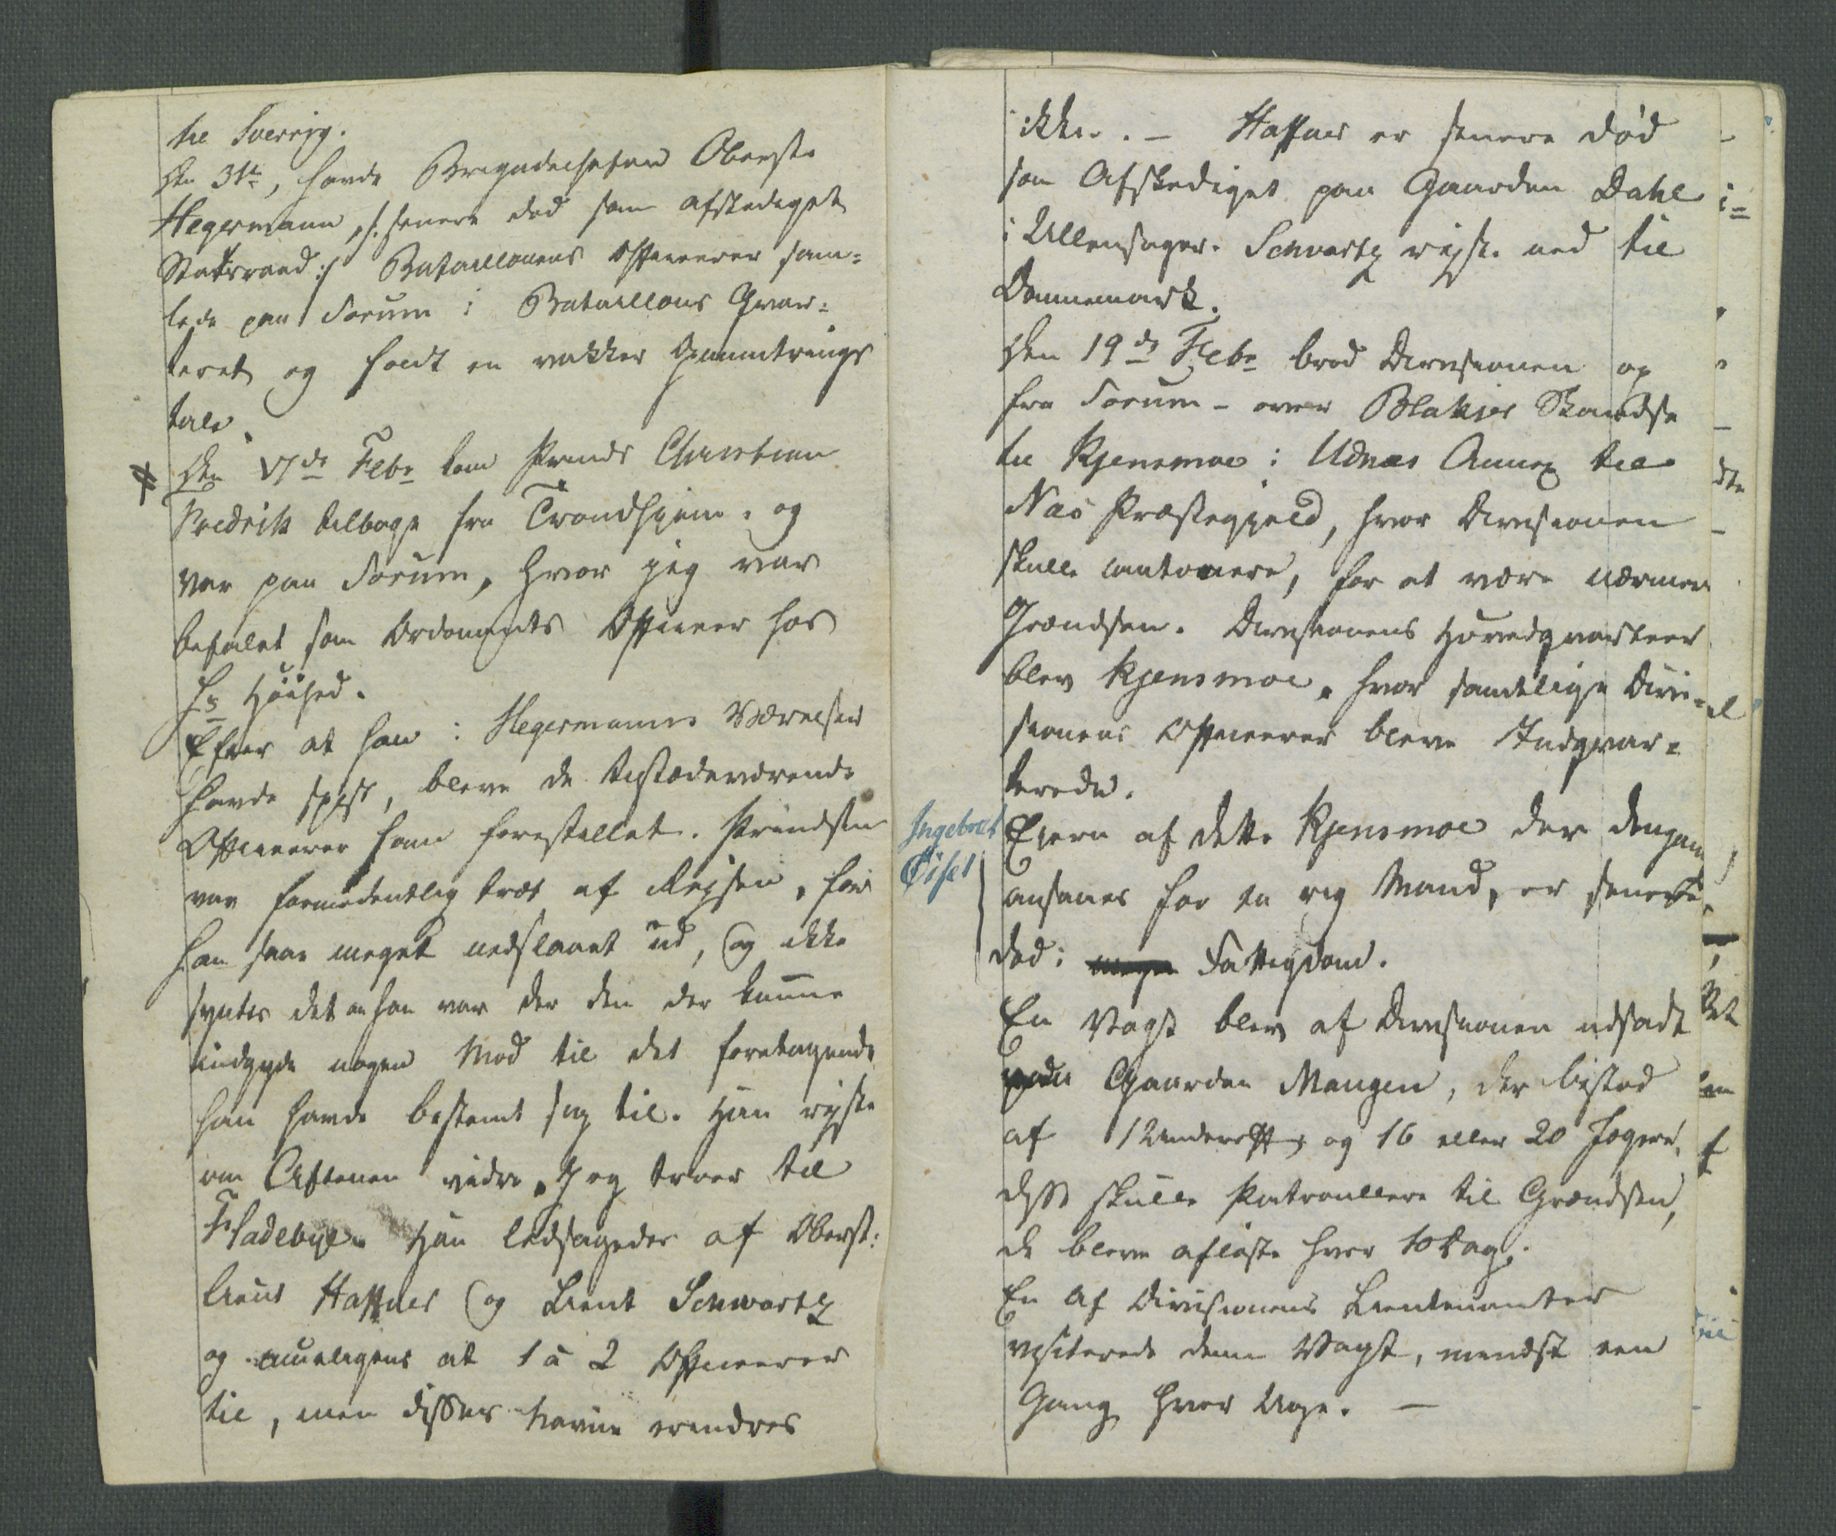 til Sverrig.
Den 31te, havde Brigadechefen Oberste
Hegermann, /: senere død som afskediget
Statsraad :/ Bataillonens Officerer sam=
lede paa Sørum i Bataillons Qvar=
teret og holdt en vakker Opmuntrings
tale.
Den 17de Febr kom Prinds Christian
Fredrik tilbage fra Trondhjem. og
var paa Sørum, hvor jeg var
befalet som Ordonants Officeer hos
Hs Höihed.
Efter at han i Hegermanns Værelser
havde spist, bleve de tilstædeværende
Officerer ham forestillet. Prindsen
var formodentlig træt af Rejsen, for
han saae meget nedslaaet ud, og ikke
syntes det at han var der den der kunne
indgyde nogen Mod til det foretagende
han havde bestemt sig til. Han rejste
om Aftenen videre, jeg troer til
Fladebye. Han ledsagedes af Oberst:
lieut Haffner og Lieut Schwartz
og mueligens at 1 à 2 Officerer
til, men disses Navne erindres
ikke. – Haffner er senere död
som Afskediget paa Gaarden Dahl
i Ullensager. Schvartz rejste ned til
Dannemark.
Den 19de Febr brød Divisionen op
fra Sørum – over Blakjer Skandse
til Kjensmoe i Udnæs Annex til
Næs Præstegjeld, hvor Divisionen
skulle cantonere, for at være nærmere
Grændsen. Divisionens Hovedqvarteer
blev Kjensmoe, hvor samtlige Divi=
sionens Officerer bleve Indqvar=
terede.
Ingebret
Öiset
Eieren af dette Kjensmoe der dengang
ansaaes for en rig Mand, er senere
död i Fattigdom.
En Vagt blev af Divisionen udsadt
paa Gaarden Mangen, der bestod
af 1 Underoff og 16 eller 20 Jægere,
disse skulle Patroullere til Grændsen,
de bleve aflöste hver 10 Dag.
En af Divisionens Lieutenanter
visiterede denne Vagt, mindst een
Gang hver Uge. –